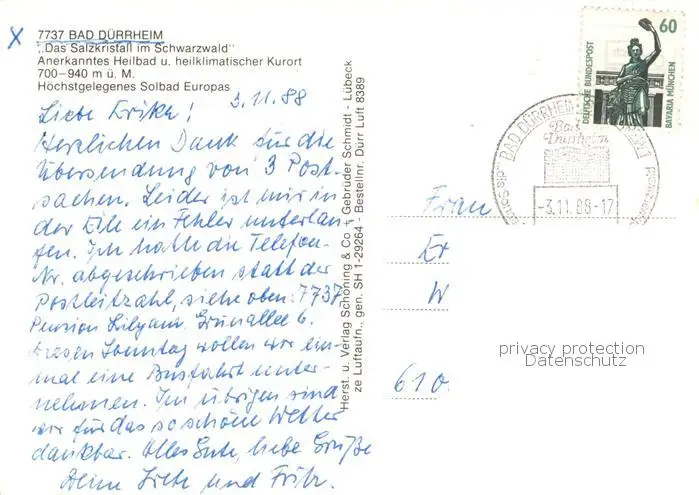 7737 BAD DÜRRHEIM
„Das Salzkristall im Schwarzwald"
Anerkanntes Heilbad u. heilklimatischer Kurort
700–940 m ü. M.
Höchstgelegenes Solbad Europas
3.11.88
Liebe Erika!
Herzlichen Dank für die
Übersendung von 3 Post-
sachen. Leider ist mir in
der Eile ein Fehler unterlau-
fen. Ich hatte die Telefon-
Nr. abgeschrieben statt der
Postleitzahl, siehe oben: 7737
Pension Lilyam. Grünallee 6.
Diesen Sonntag wollen wir ein-
mal eine Busfahrt unter-
nehmen. Im übrigen sind
wir für das so schöne Wetter
dankbar. Alles Gute, liebe Grüße
Deine und Fritz.
Herst. u. Verlag Schöning & Co + Gebrüder Schmidt - Lübeck
ze Luftaufn., gen. SH 1-29264 - Bestellnr. Dürr Luft 8389
60
DEUTSCHE BUNDESPOST
BAVARIA MÜNCHEN
BAD DÜRRHEIM
Bad
Dürrheim
-3.11.88-17
Frau
Er
W
610
privacy protection
Datenschutz